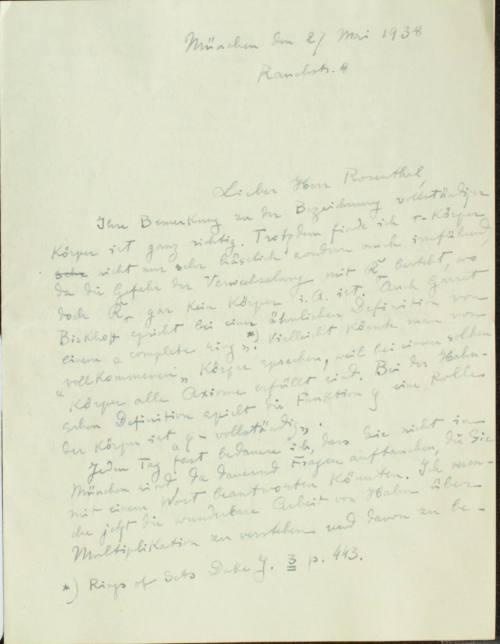 München den 21 Mai 1938
Rauchstr. 8
Lieber Herr Rosenthal,
Ihre Bemerkung zu der Bezeichnung vollständiger
Körper ist ganz richtig. Trotzdem finde ich σ-Körper
nicht nur sehr hässlich sondern auch irreführend
da die Gefahr der Verwechselung mit besteht, wo
doch gar kein Körper i. A. ist. Auch Garrit
Birkhoff spricht bei einer ähnlichen Definition von
einem "complete ring". *) Vielleicht könnte man von
"vollkommenen" Körper sprechen, weil bei einem solchen
Körper alle Axiome erfüllt sind. Bei der Hahn-
schen Definition spielt die Funktion φ eine Rolle
der Körper ist "φ-vollständig".
Jeden Tag fast bedaure ich, dass Sie nicht in
München sind, da dauernd Fragen auftauchen, die Sie
mit einem Wort beantworten könnten. Ich versu-
che jetzt die wunderbare Arbeit von Hahn über
Multiplikation zu verstehen und davon zu be-
*) Rings of Sets Duke J. 3 p. 443.